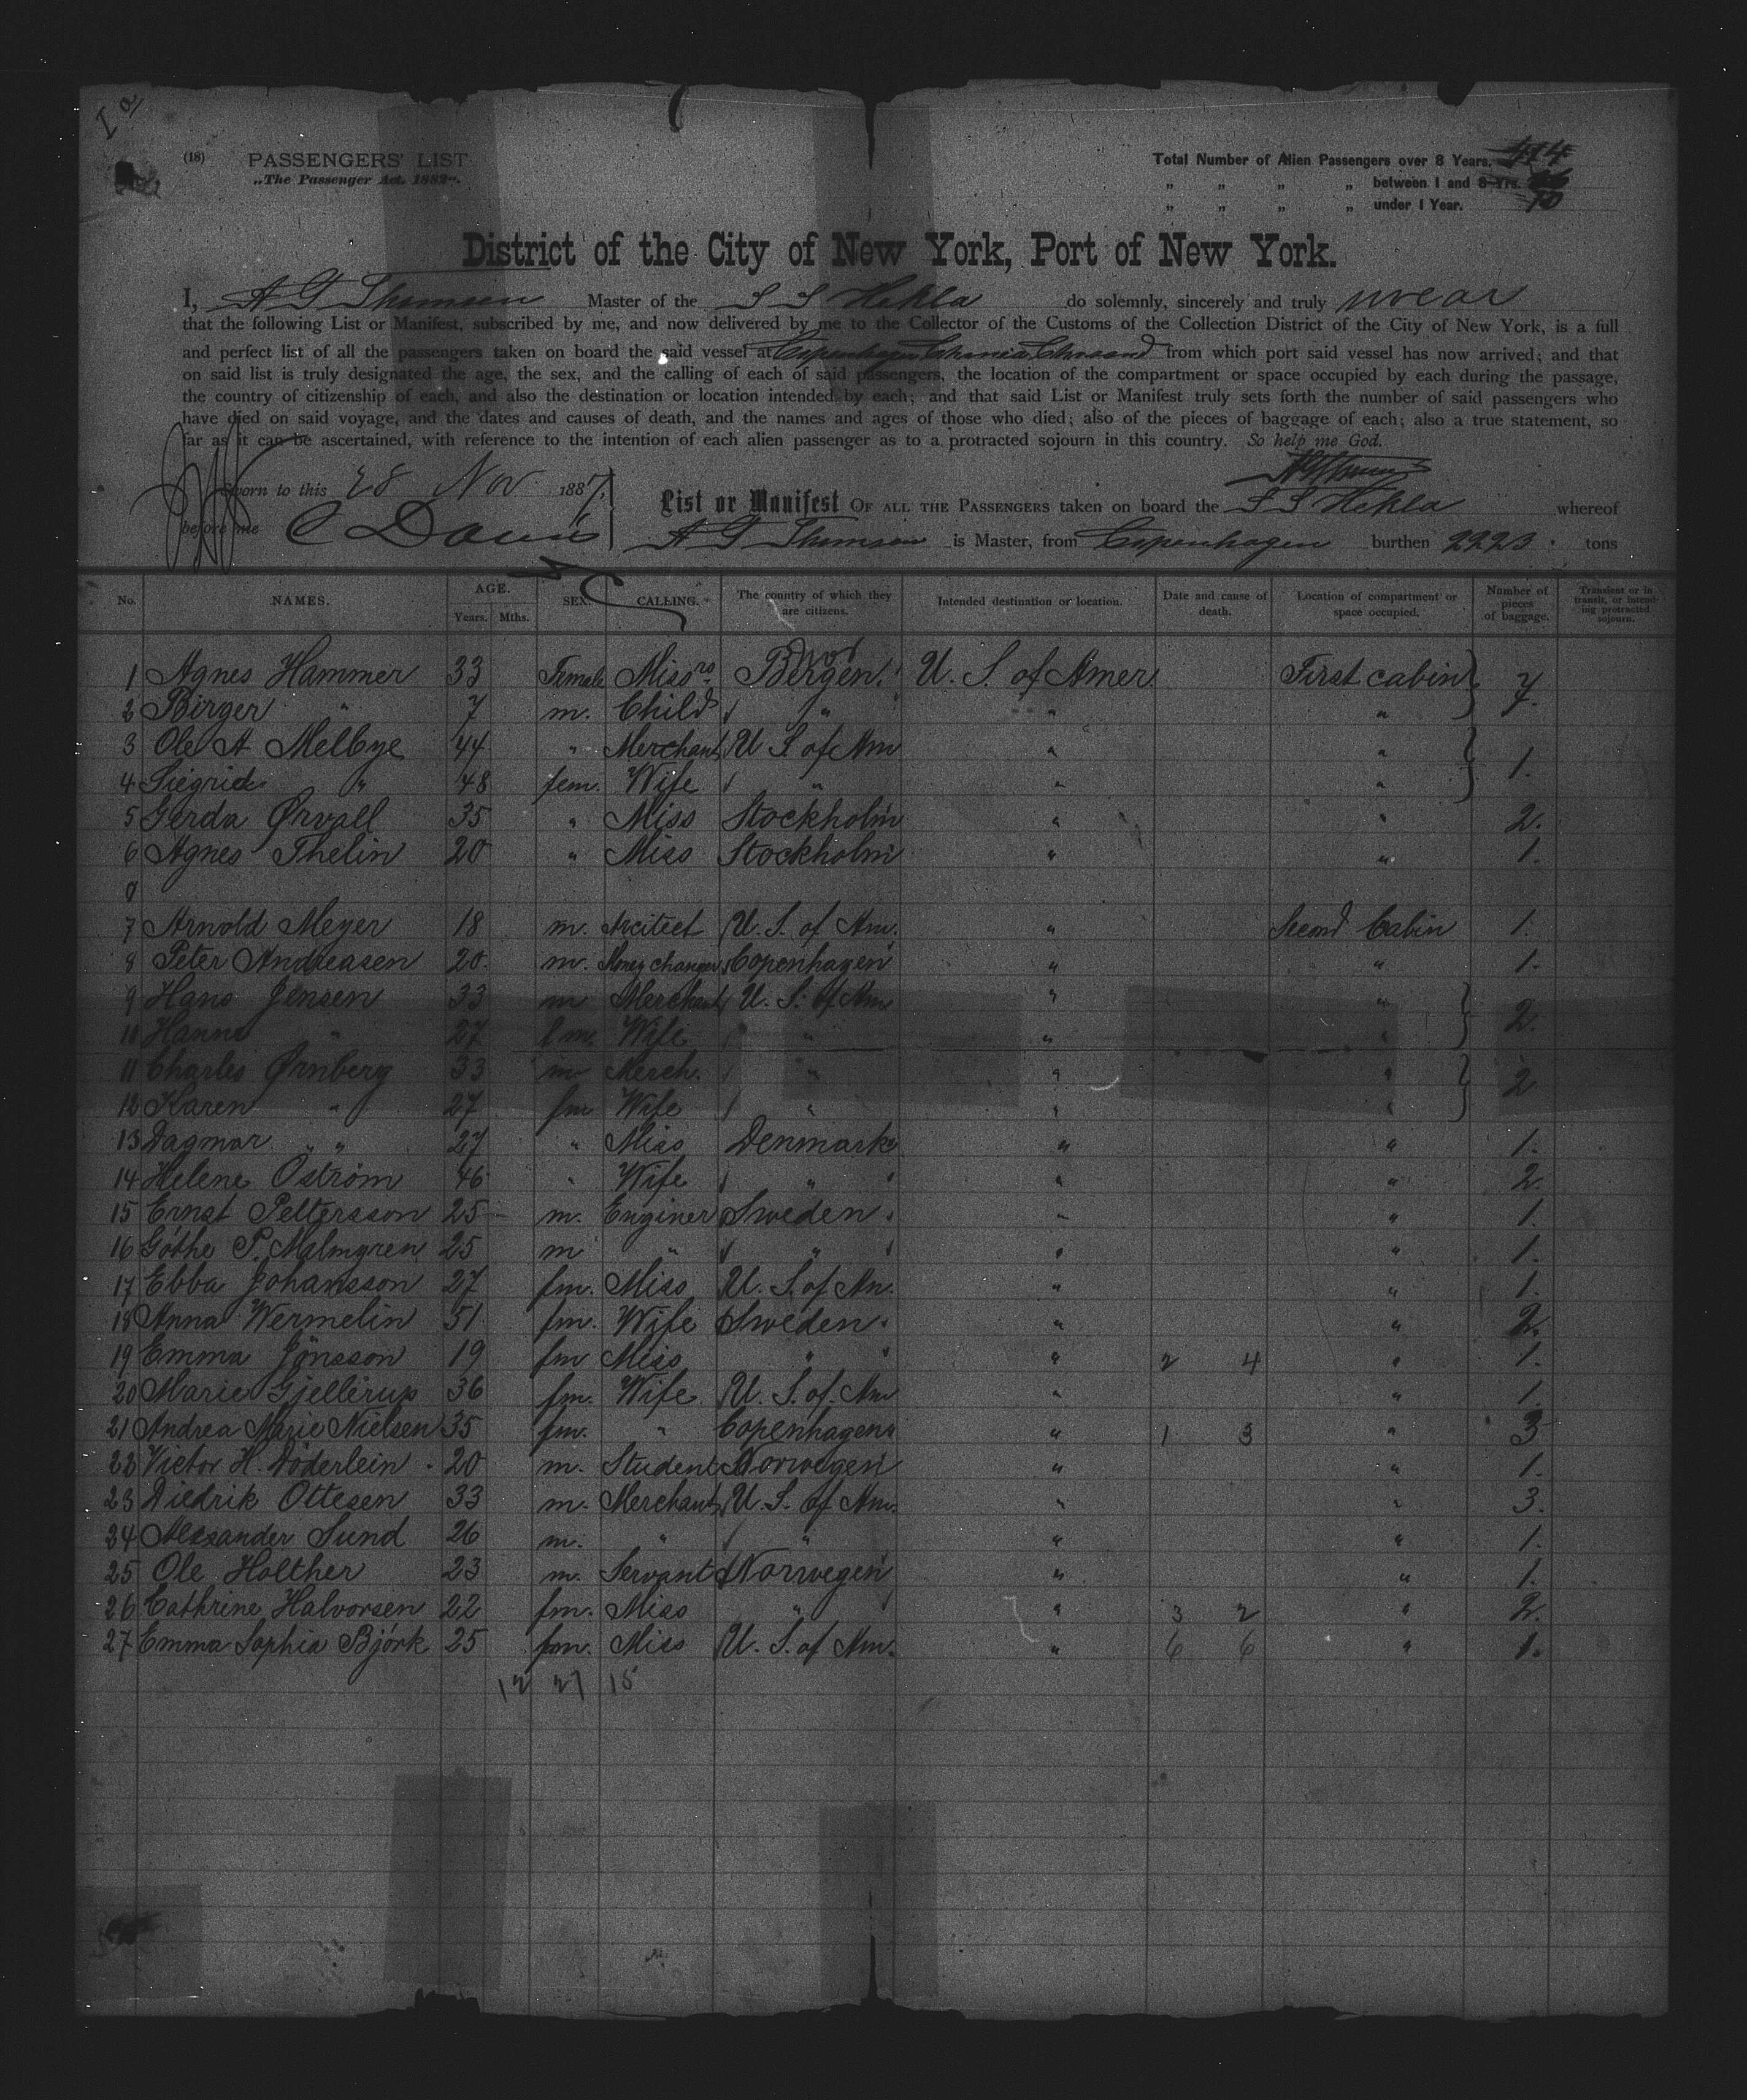 (18) PASSENGERS' LIST
„The Passenger Act, 1882".
Total Number of Alien Passengers over 8 Years.
„ „ „ „ between 1 and 8 Yrs.
„ „ „ „ under 1 Year. 10
District of the City of New York, Port of New York.
I, A G Thomsen Master of the S S Hekla do solemnly, sincerely and truly swear
that the following List or Manifest, subscribed by me, and now delivered by me to the Collector of the Customs of the Collection District of the City of New York, is a full
and perfect list of all the passengers taken on board the said vessel at Copenhagen, Chrania, Chrsand from which port said vessel has now arrived; and that
on said list is truly designated the age, the sex, and the calling of each of said passengers, the location of the compartment or space occupied by each during the passage,
the country of citizenship of each, and also the destination or location intended by each; and that said List or Manifest truly sets forth the number of said passengers who
have died on said voyage, and the dates and causes of death, and the names and ages of those who died; also of the pieces of baggage of each; also a true statement, so
far as it can be ascertained, with reference to the intention of each alien passenger as to a protracted sojourn in this country. So help me God.
Sworn to this 28 Nov. 1887,
before me C Davis
List or Manifest OF ALL THE PASSENGERS taken on board the S S Hekla whereof
A G Thomsen is Master, from Copenhagen burthen 2223 tons
No. NAMES. AGE. Years. Mths. SEX. CALLING. The country of which they are citizens. Intended destination or location. Date and cause of death. Location of compartment or space occupied. Number of pieces of baggage. Transient or in transit, or intending protracted sojourn.
Nor
1 Agnes Hammer 33 Female Miss rs Bergen. U. S. of Amer. First cabin 7.
2 Birger " 7 m. Child " " "
3 Ole A Melbye 44 " Merchant U S of Am " " 1.
4 Siegrid " 48 fem. Wife " " "
5 Gerda Ørvall 35 " Miss Stockholm " " 2.
6 Agnes Thelin 20 " Miss Stockholm " " 1.
7 Arnold Meyer 18 m. Arcitect U. S. of Am. " Second Cabin 1.
8 Peter Andreasen 20. m. Money changer Copenhagen " " 1.
9 Hans Jensen 33 m Merchant U. S. of Am " " 2.
10 Hanna " 27 fm. Wife " " "
11 Charles Ørnberg 33 m Merch. " " " 2
12 Karen " 27 fm Wife " " "
13 Dagmar " " 27 " Miss Denmark " " 1.
14 Helene Öström 46 " Wife " " " 2.
15 Ernst Pettersson 25 m. Enginer Sweden. " " 1.
16 Göthe P. Malmgren 25 m " " " " 1.
17 Ebba Johansson 27 fm. Miss U. S. of Am. " " 1.
18 Anna Wermelin 51 fm. Wife Sweden. " " 2.
19 Emma Jönsson 19 fm Miss " " 2 4 " 1.
20 Marie Gjellerup 36 fm. Wife U. S. of Am " " 1.
21 Andrea Marie Nielsen 35 fm. " Copenhagen " 1 3 " 3
22 Victor H. Döderlein 20 m. Student Norwegen " " 1.
23 Diedrik Ottesen 33 m. Merchant U. S. of Am. " " 3.
24 Alexander Sund 26 m. " " " " 1.
25 Ole Holther 23 m. Servant Norwegen " " 1.
26 Cathrine Halvorsen 22 fm. Miss " " 3 2 " 2.
27 Emma Sophia Björk 25 fm. Miss U. S. of Am. " 6 6 " 1.
12 27 15